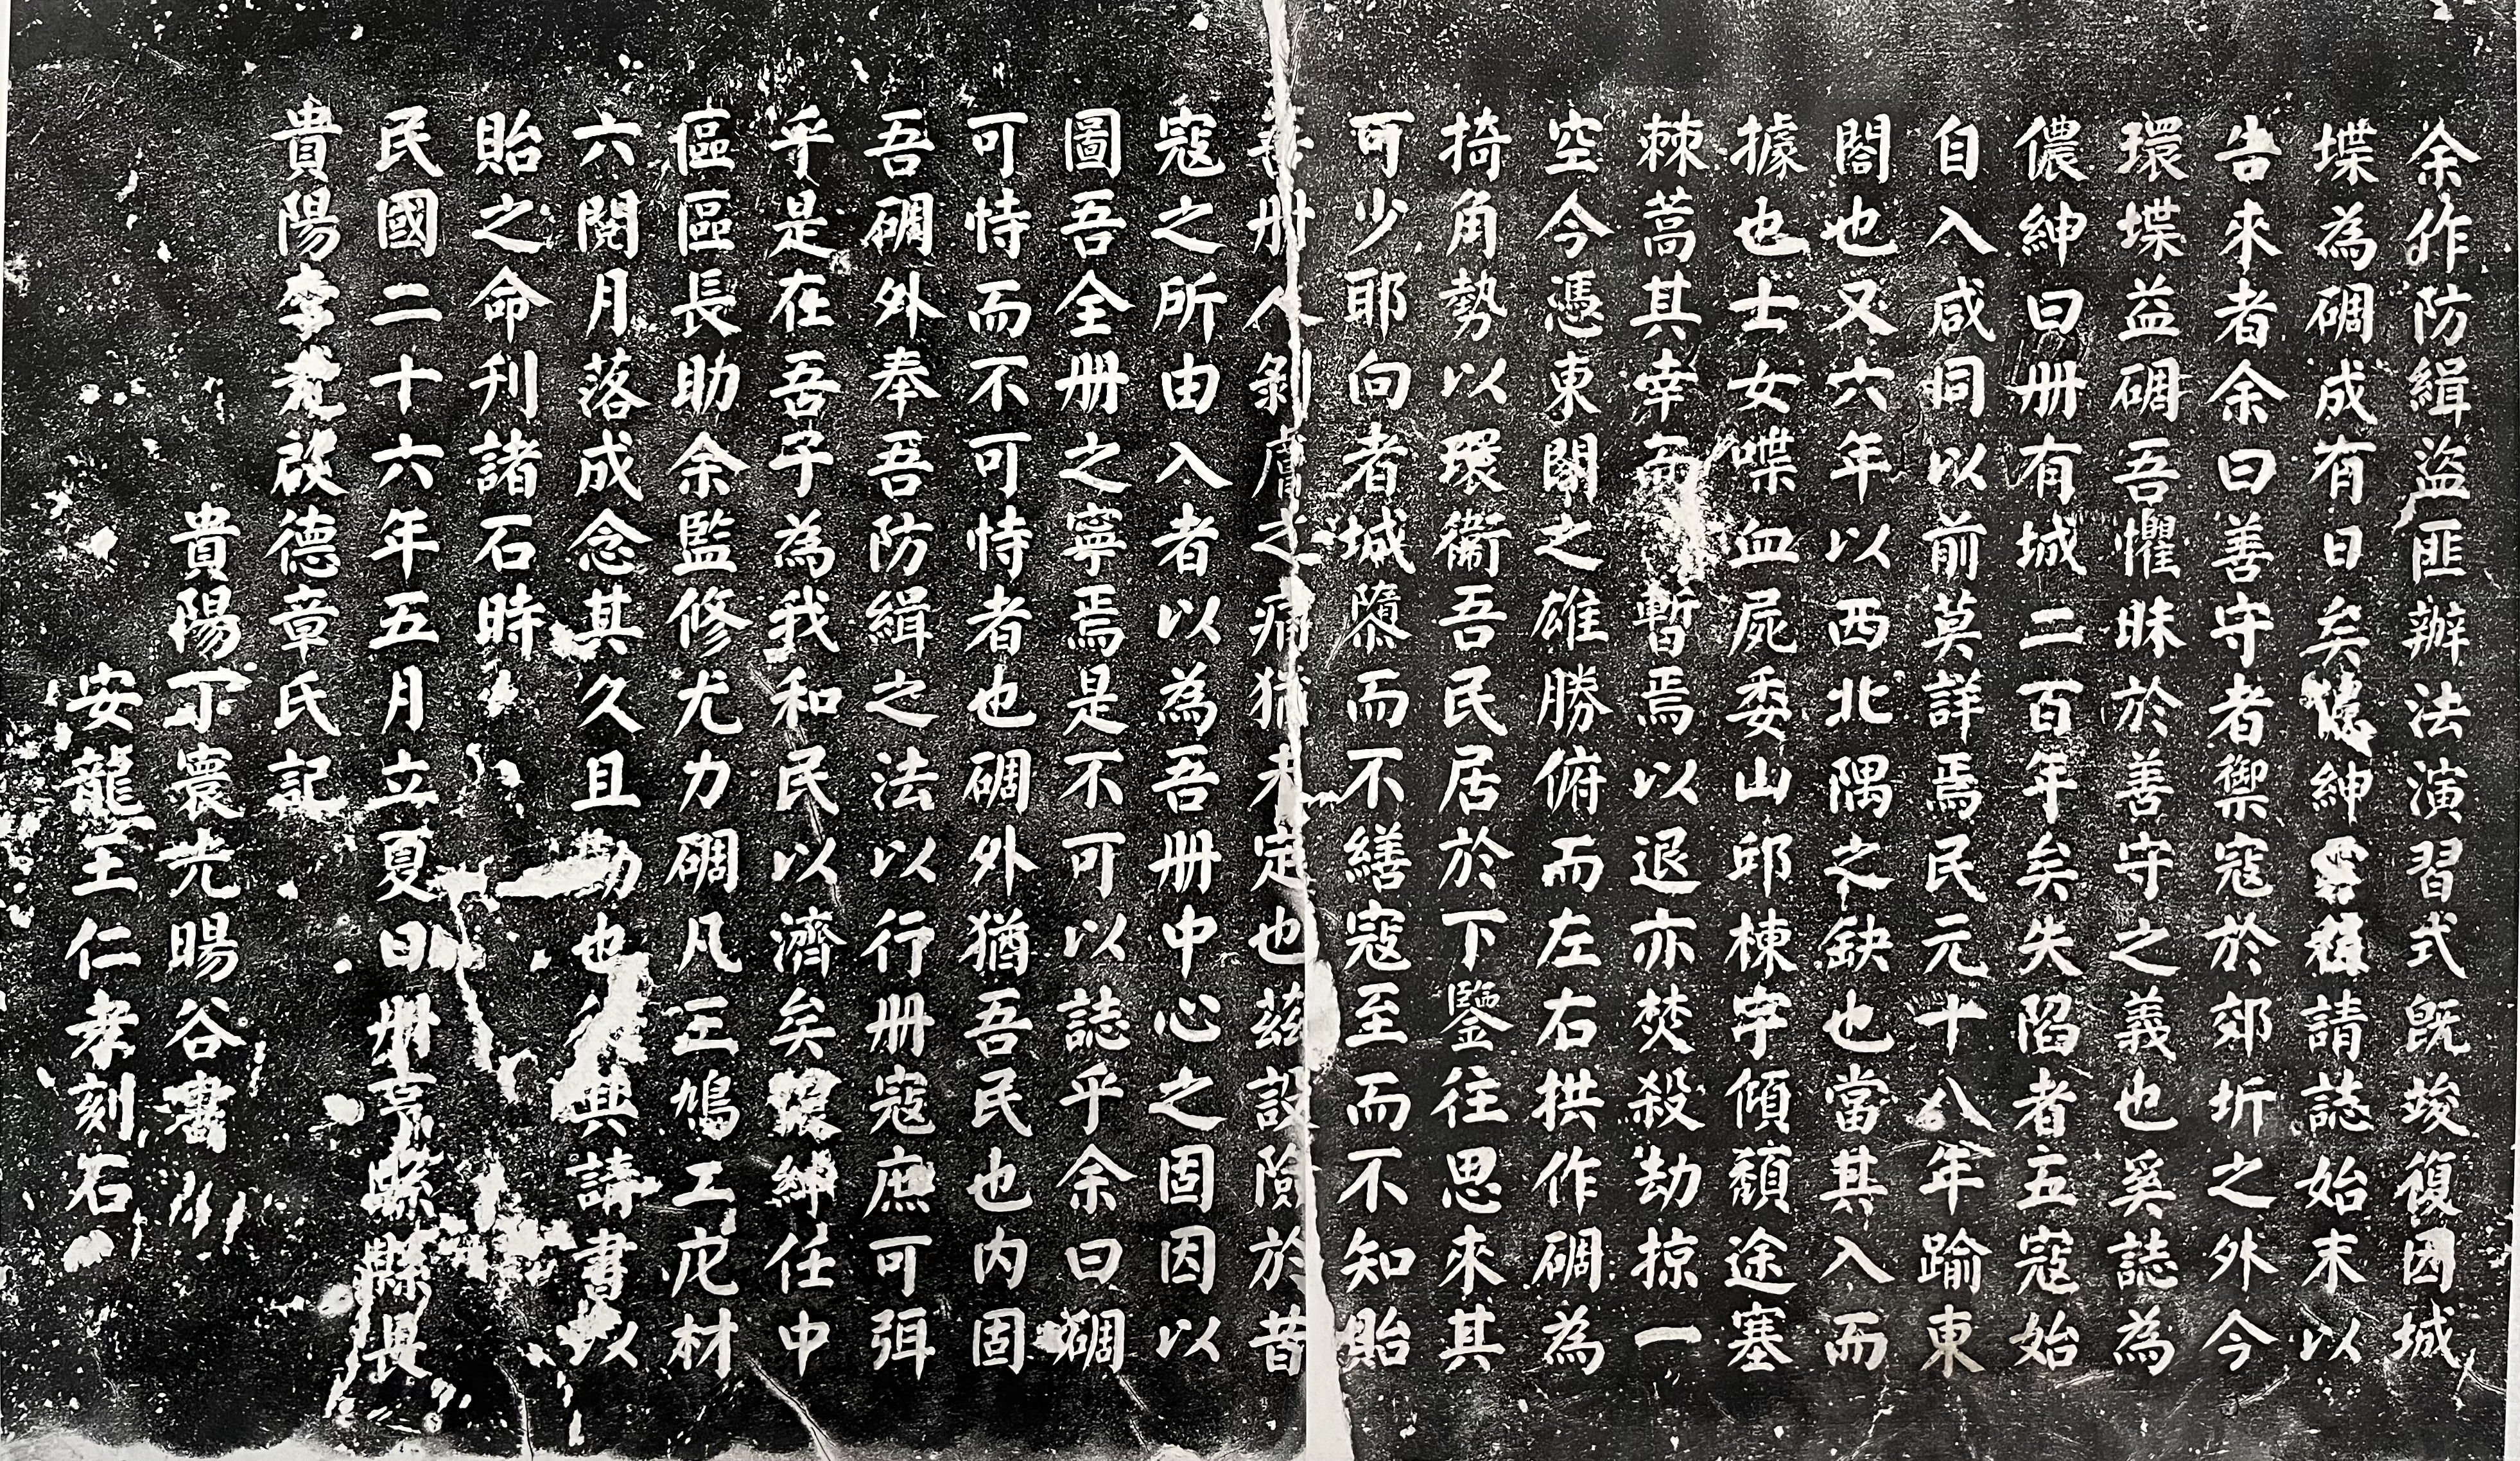 余作防緝盜匪辦法演習式既竣復因城
堞為碉成有日矣儂紳雲緝請誌始末以
告來者余曰善守者禦寇於郊圻之外今
環堞益碉吾懼昧於善守之義也奚誌為
儂紳曰冊有城二百年矣失陷者五寇始
自入咸同以前莫詳焉民元十八年踰東
閣也又六年以西北隅之缺也當其入而
據也士女喋血屍委山邱棟宇傾頹途塞
棘蒿其幸而暫焉以退亦焚殺劫掠一
空今憑東關之雄勝俯而左右拱作碉為
掎角勢以環衞吾民居於下鑒往思來其
可少耶向者城隳而不繕寇至而不知貽
冊人剝膚之痛猶未定也茲設險於昔
寇之所由入者以為吾冊中心之固因以
圖吾全冊之寧焉是不可以誌乎余曰碉
可恃而不可恃者也碉外猶吾民也内固
吾碉外奉吾防緝之法以行冊寇庶可弭
乎是在吾子為我和民以濟矣儂紳任中
區區長助余監修尤力碉凡三鳩工庀材
六閱月落成念其久且勤也興請書以
貽之命刊諸石時
民國二十六年五月立夏日冊亨縣縣長
貴陽李啟德章氏記
貴陽丁寰光暘谷書
安龍王仁孝刻石